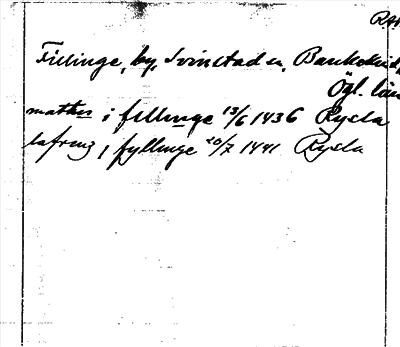 RAP
Fillinge, by, Svinstad sn, Bankekind,
Ögl. län
mattis i fillinge 13/6 1436 Rysla
lafrinz i fyllinge 20/7 1441 Rysla